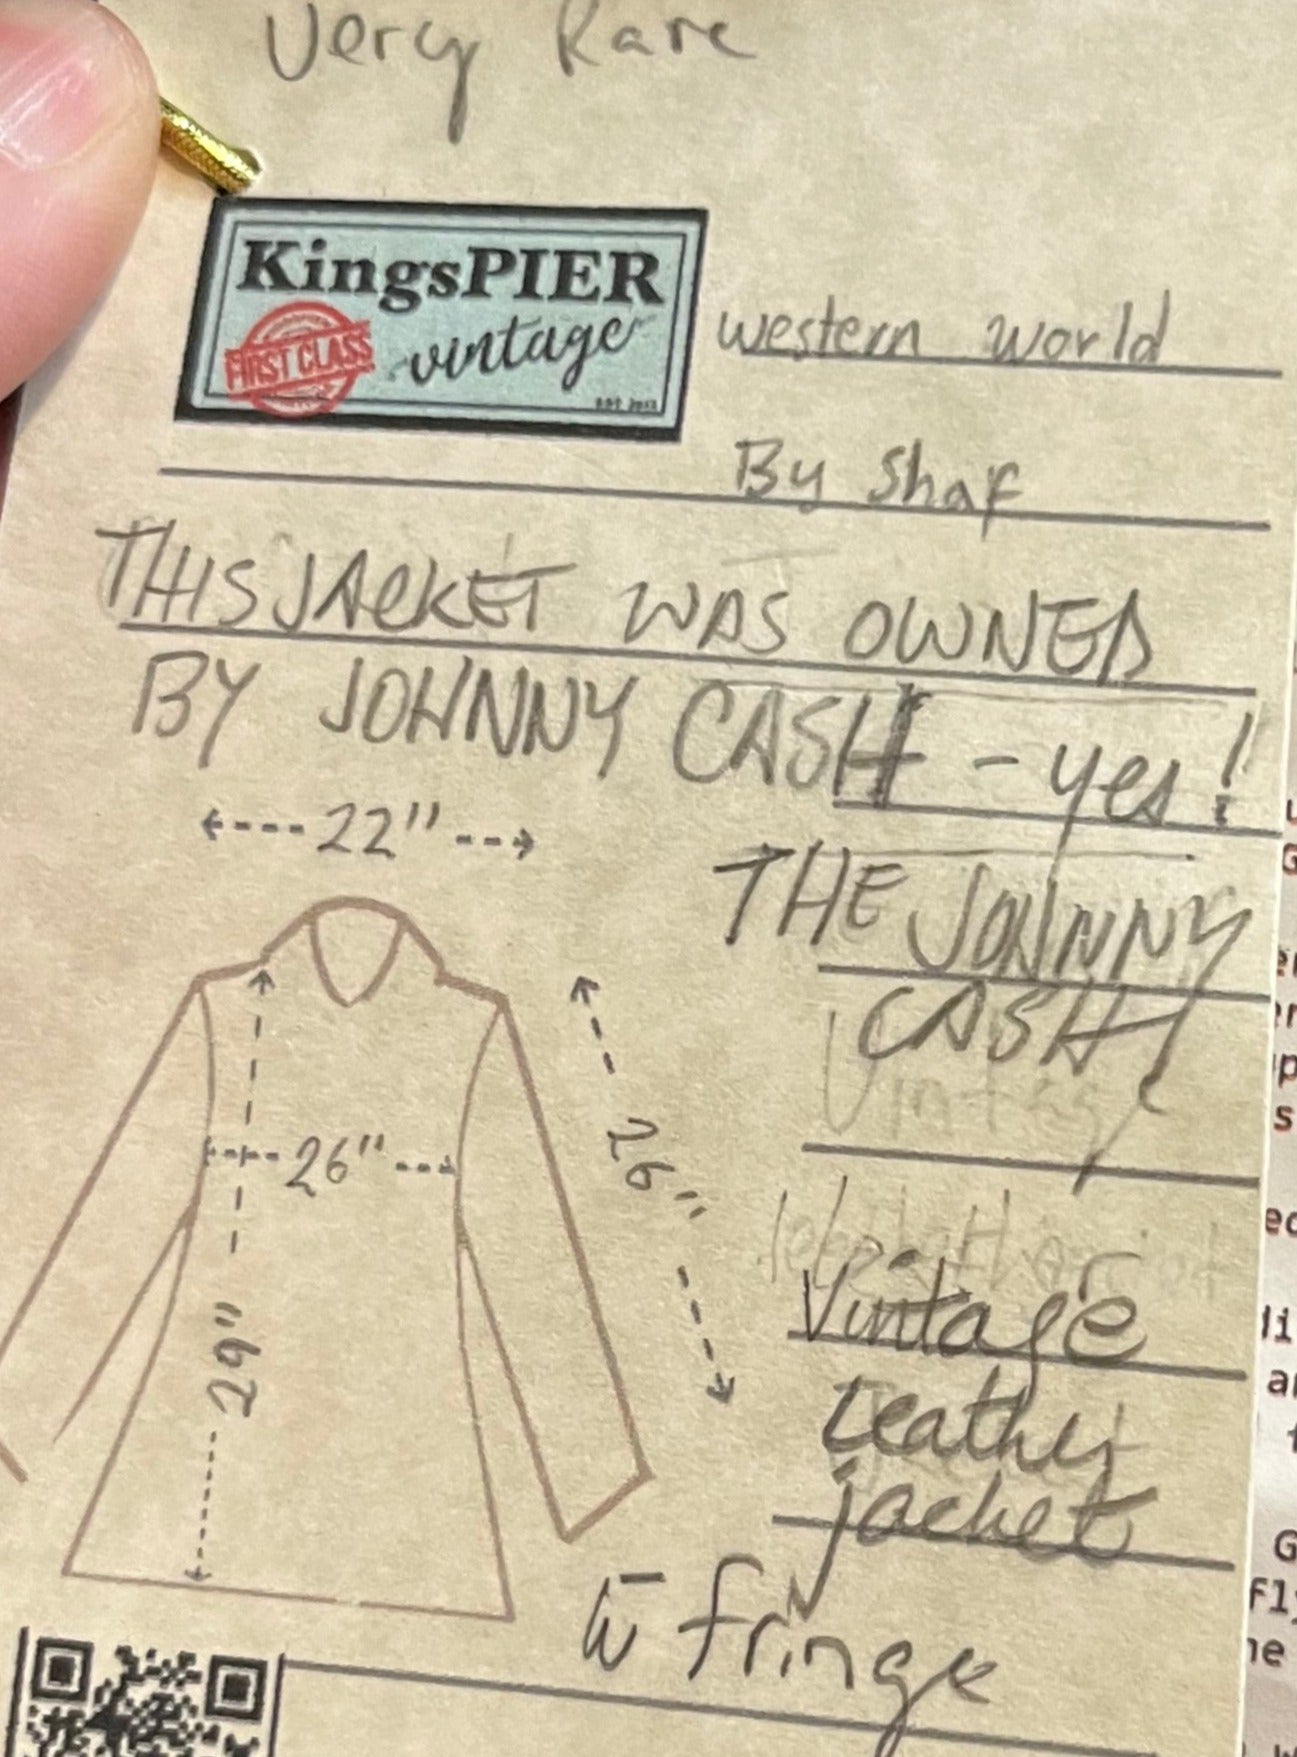 Very Rare
KingsPIER
vintage
FIRST CLASS
EST 2012
western world
By Shaf
THIS JACKET WAS OWNED
BY JOHNNY CASH - yes!
22"
THE JOHNNY
CASH!
Vintage
26"
26"
29"
Vintage
Leather
jacket
w̄ fringe